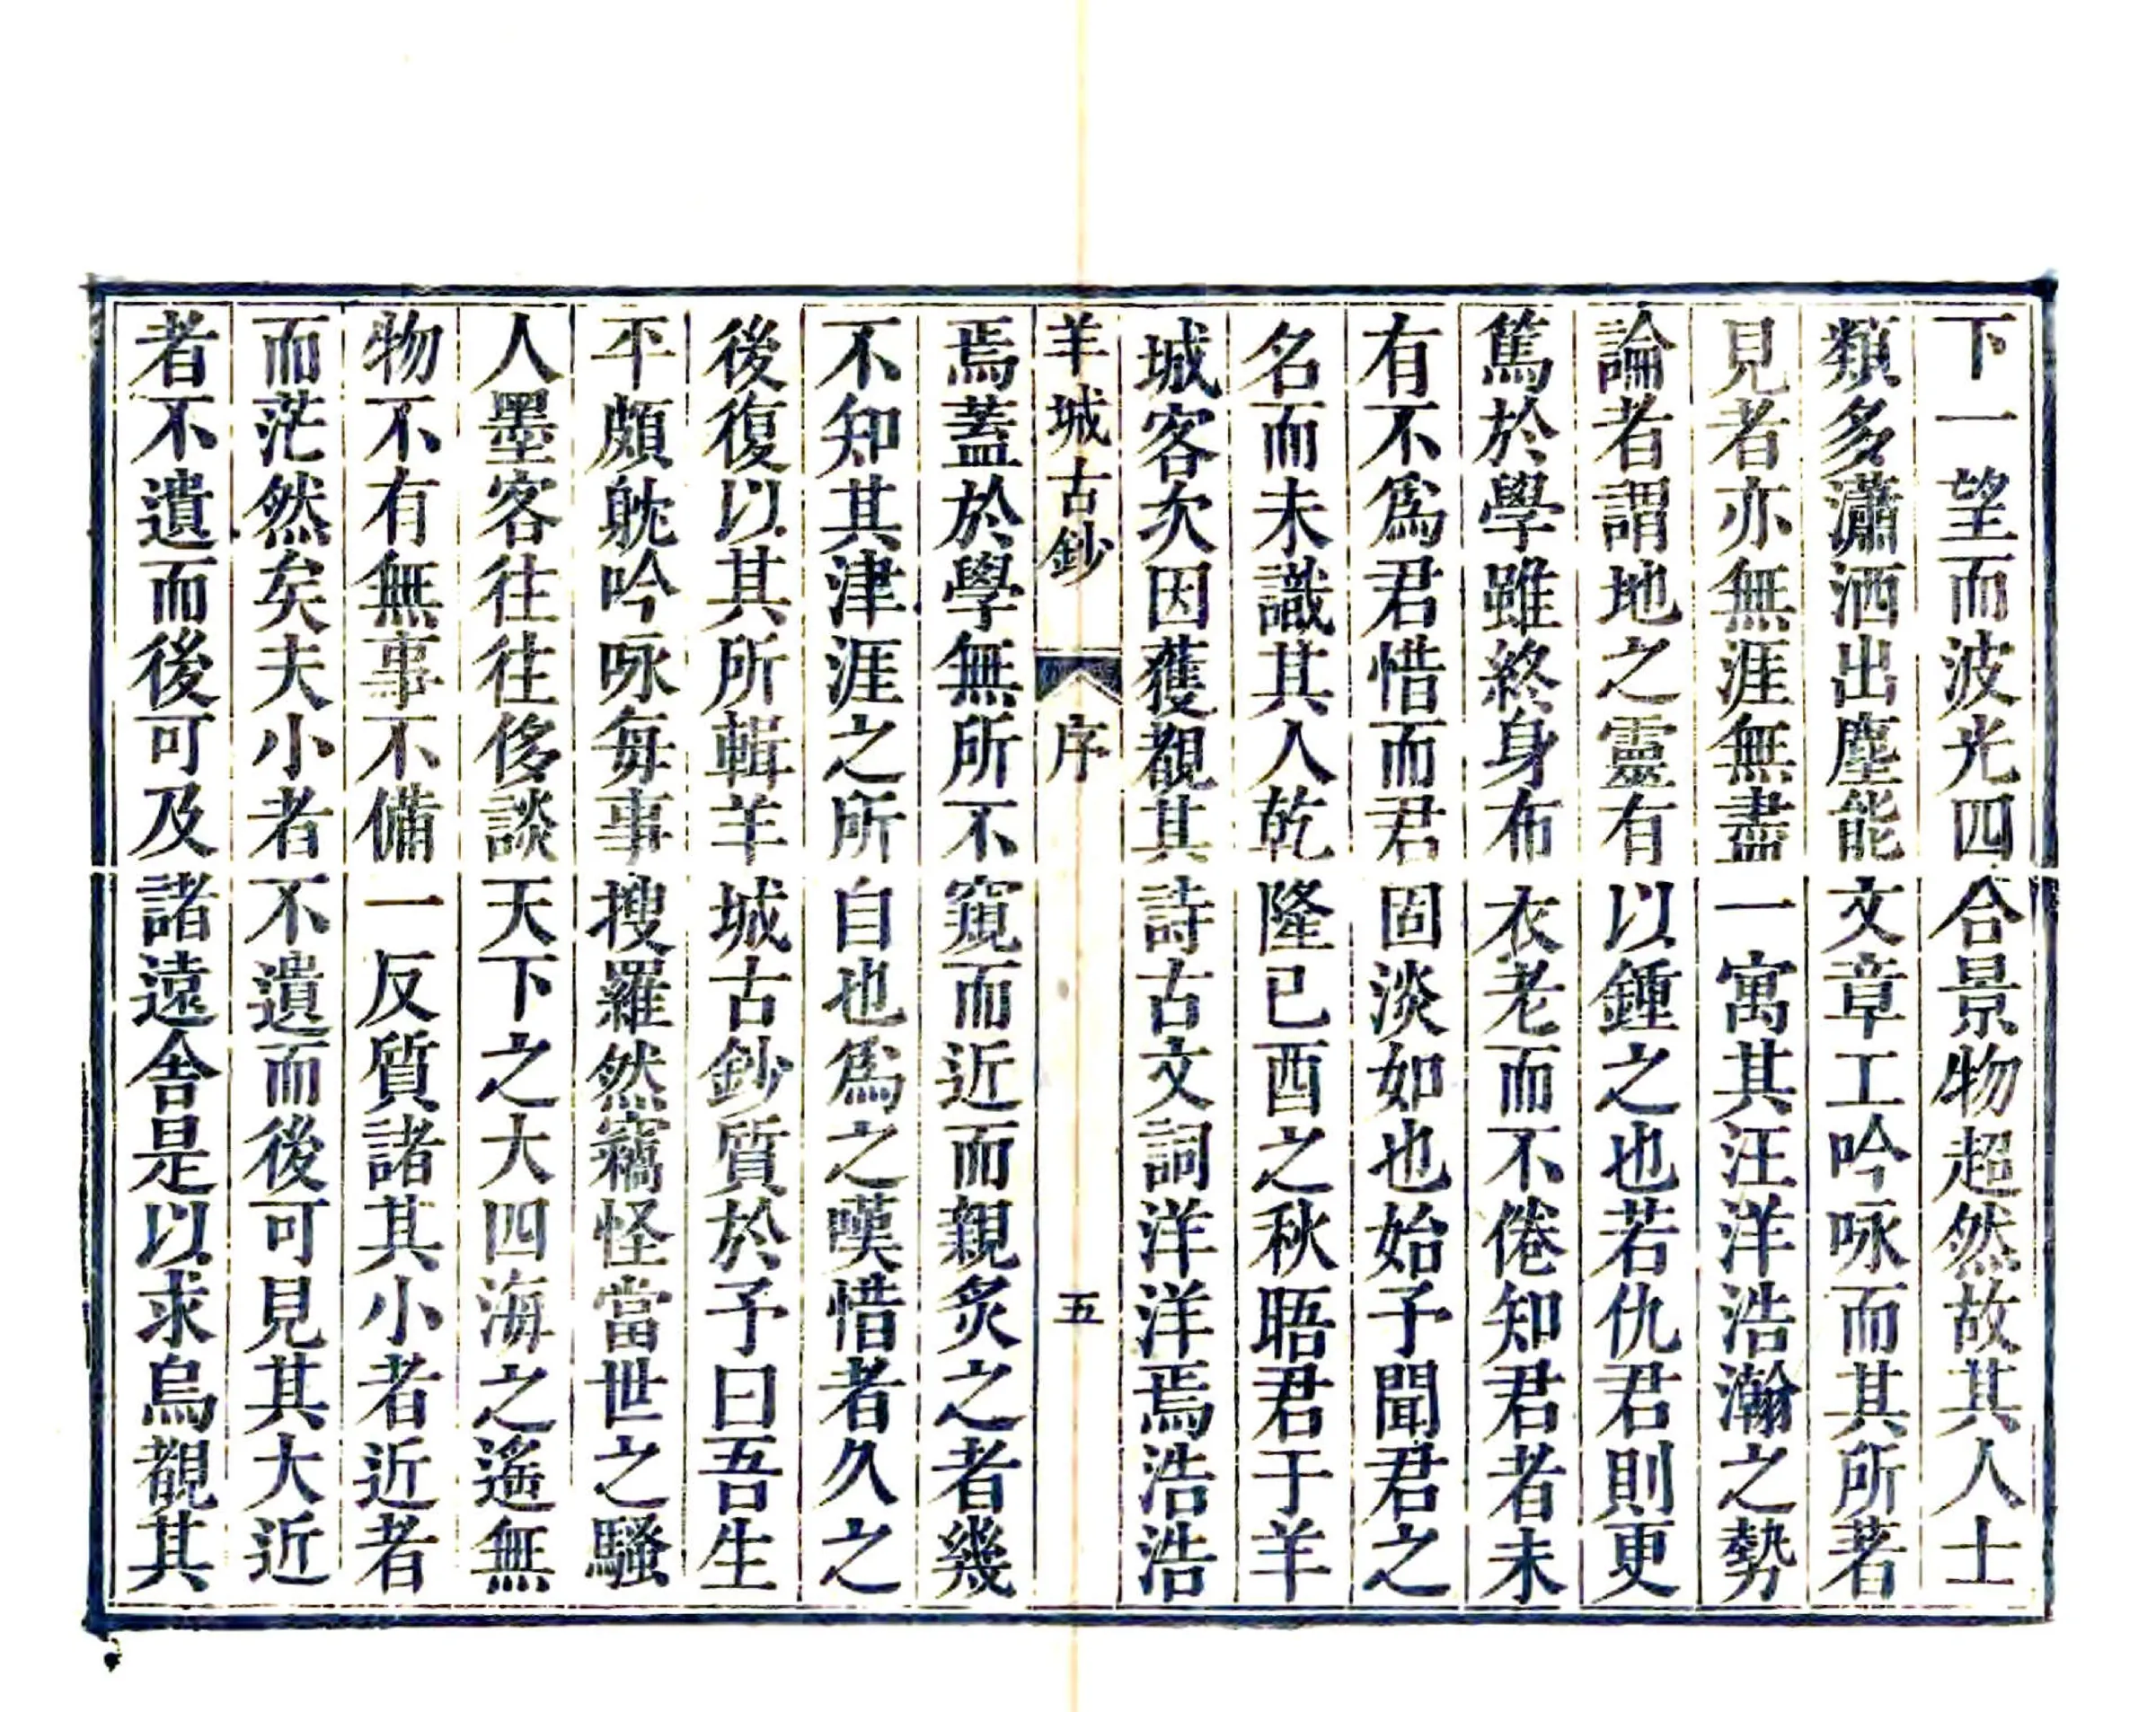 下一望而波光四合景物超然故其人士
類多瀟洒出塵能文章工吟咏而其所著
見者亦無涯無盡一寓其汪洋浩瀚之勢
論者謂地之靈有以鍾之也若仇君則更
篤於學雖終身布衣老而不倦知君者未
有不爲君惜而君固淡如也始予聞君之
名而未識其人乾隆已酉之秋晤君于羊
城客次因獲觀其詩古文詞洋洋焉浩浩
羊城古鈔
序
五
焉蓋於學無所不窺而近而親炙之者幾
不知其津涯之所自也爲之嘆惜者久之
後復以其所輯羊城古鈔質於予曰吾生
平頗躭吟咏每事搜羅然竊怪當世之騷
人墨客往往侈談天下之大四海之遙無
物不有無事不備一反質諸其小者近者
而茫然矣夫小者不遺而後可見其大近
者不遺而後可及諸遠舍是以求烏覩其